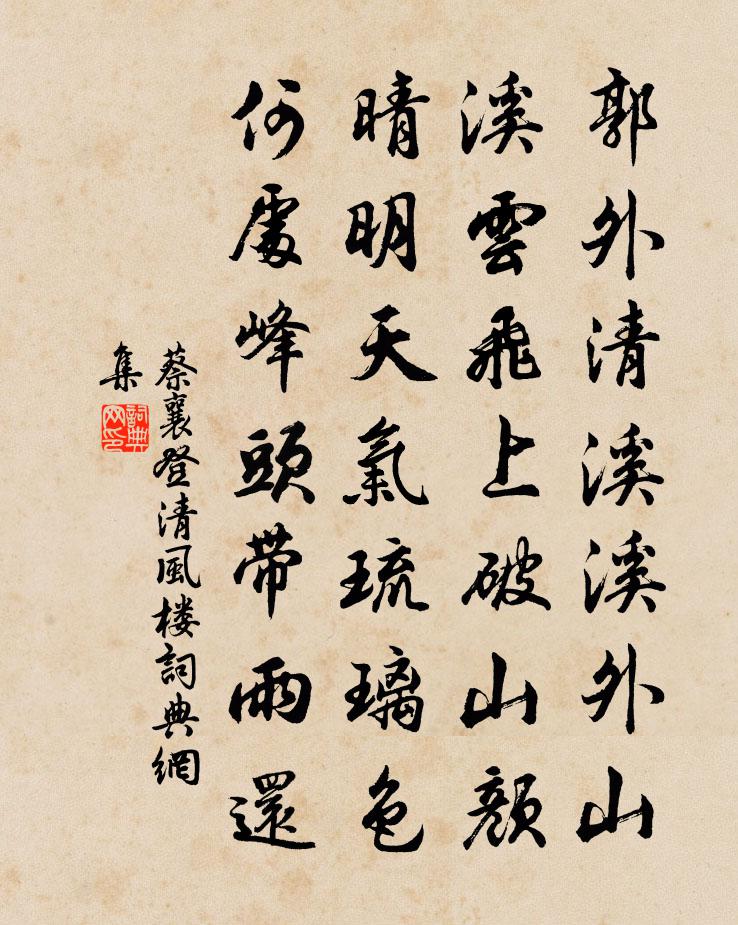 郭外清溪溪外山
溪雲飛上破山顏
晴明天氣琉璃色
何處峰頭帶雨還
蔡襄登清風楼詞典網
集
詞典
网印